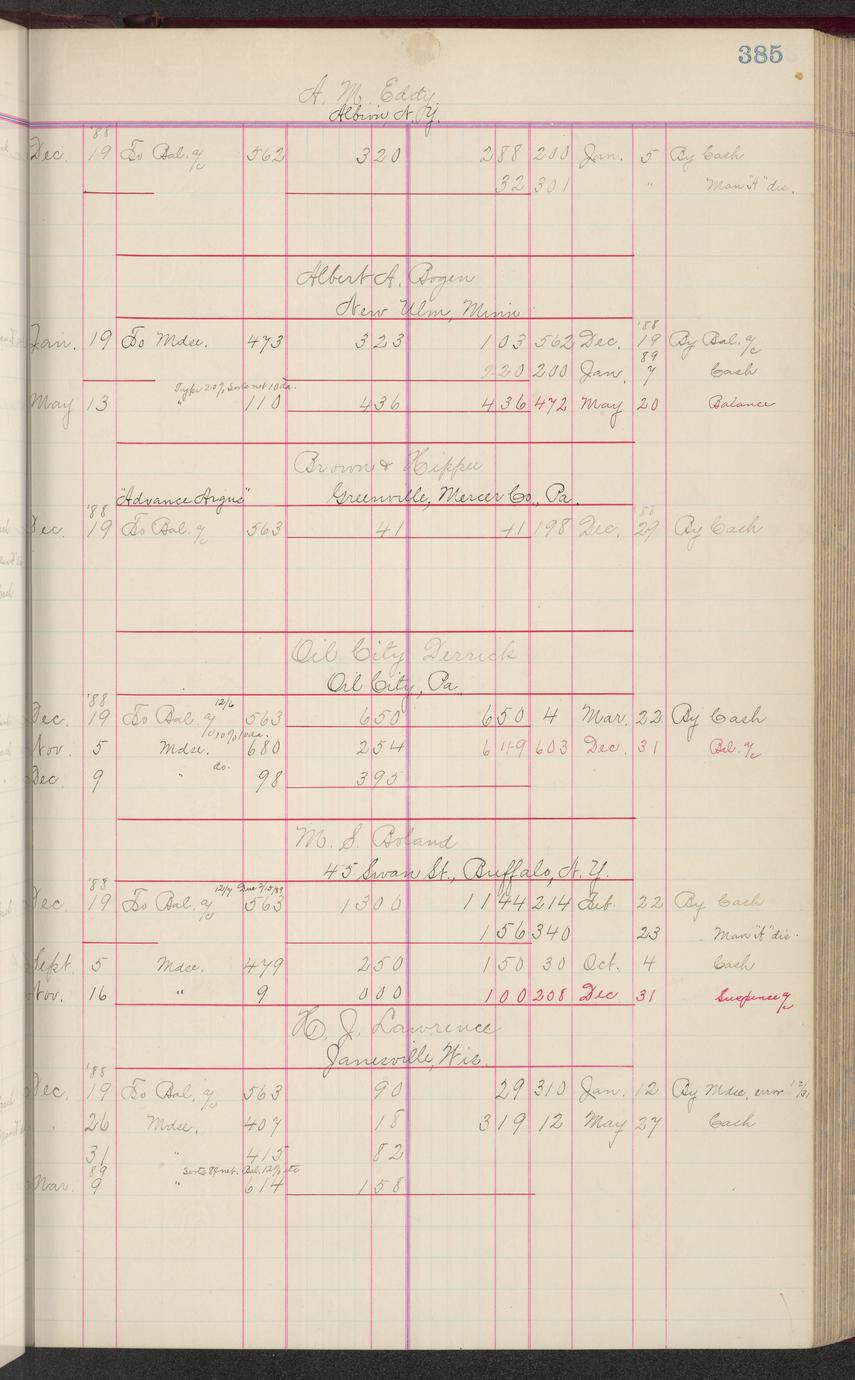 385
A. M. Eddy
Albion, N. Y.
'88
Dec. 19 To Bal. a/c 562 320 288 200 Jan. 5 By Cash
32 301 " Man "A" dis.
Albert A. Bogen
New Ulm, Minn
'88
Jan. 19 To Mdse. 473 323 103 562 Dec. 19 By Bal. a/c
89
220 200 Jan. 7 Cash
Type 20% Sorts net 10 da.
May 13 " 110 436 436 472 May 20 Balance
Brown & Hippee
"Advance Argus" Greenville, Mercer Co., Pa.
'88 '88
Dec. 19 To Bal. a/c 563 41 41 198 Dec. 29 By Cash
Oil City Derrick
Oil City, Pa.
'88 12/6
Dec. 19 To Bal. a/c 563 650 650 4 Mar. 22 By Cash
10% 10 da.
Nov. 5 Mdse. 680 254 649 603 Dec. 31 Bal. a/c
do.
Dec 9 " 98 395
M. S. Boland
45 Swan St., Buffalo, N. Y.
'88 12/7 Due 2/15/89
Dec. 19 To Bal. a/c 563 1300 1144 214 Feb. 22 By Cash
156 340 23 Man "A" dis.
Sept. 5 Mdse. 479 250 150 30 Oct. 4 Cash
Nov. 16 " 9 000 100 208 Dec 31 Suspence a/c
H. J. Lawrence
Janesville, Wis.
'88
Dec. 19 To Bal. a/c 563 90 29 310 Jan. 12 By Mdse, error 12/31
" 26 Mdse. 407 18 319 12 May 27 Cash
31 " 415 82
89 Sorts 8% net. Bal. 12%
Mar. 9 " 614 158